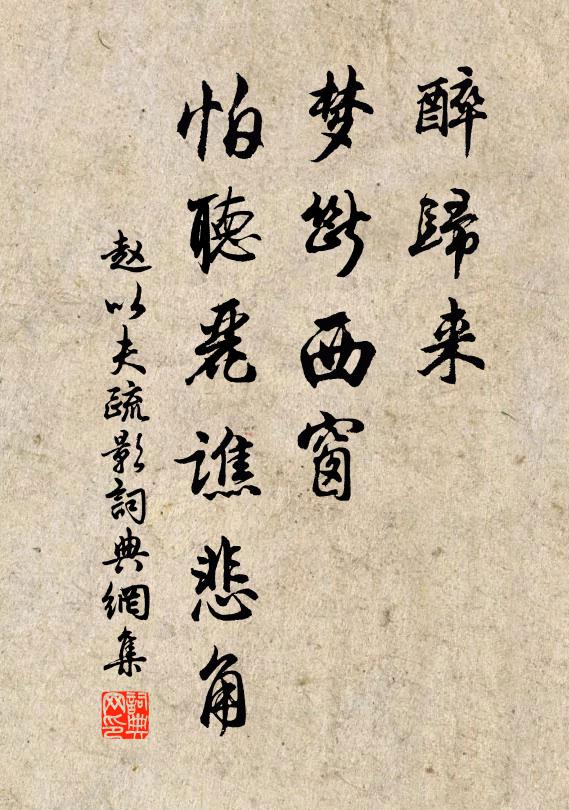 醉歸来
梦断西窗
怕聴麗譙悲角
赵以夫疏影詞典網集
詞典网印